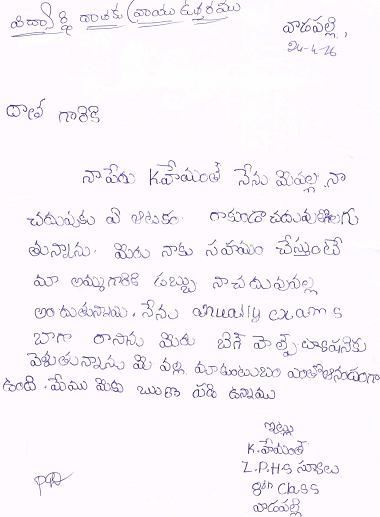 విద్యార్థి దాతకు వ్రాయు ఉత్తరము
వాడపల్లి,
24-4-16
దాత గారికి
నా పేరు K హేమంత్ నేను మీ వల్ల నా
చదువుకు ఏ ఆటంకం గాకుండా చదువుకొలుగు
తున్నాను. మీరు నాకు సహాయం చేస్తుంటే
మా అమ్మగారికి డబ్బు నా చదువువల్ల
అందుతున్నాయి. నేను anually exams
బాగా రాసాను మీరు
వెళుతున్నాను మీ వల్ల మా కుటుంబం ఎంతో ఆనందంగా
ఉంది. మేము మీకు ఋణ పడి ఉన్నాము
ఇట్లు
K. హేమంత్
Z.P.H.S స్కూలు
8th Class
వాడపల్లి